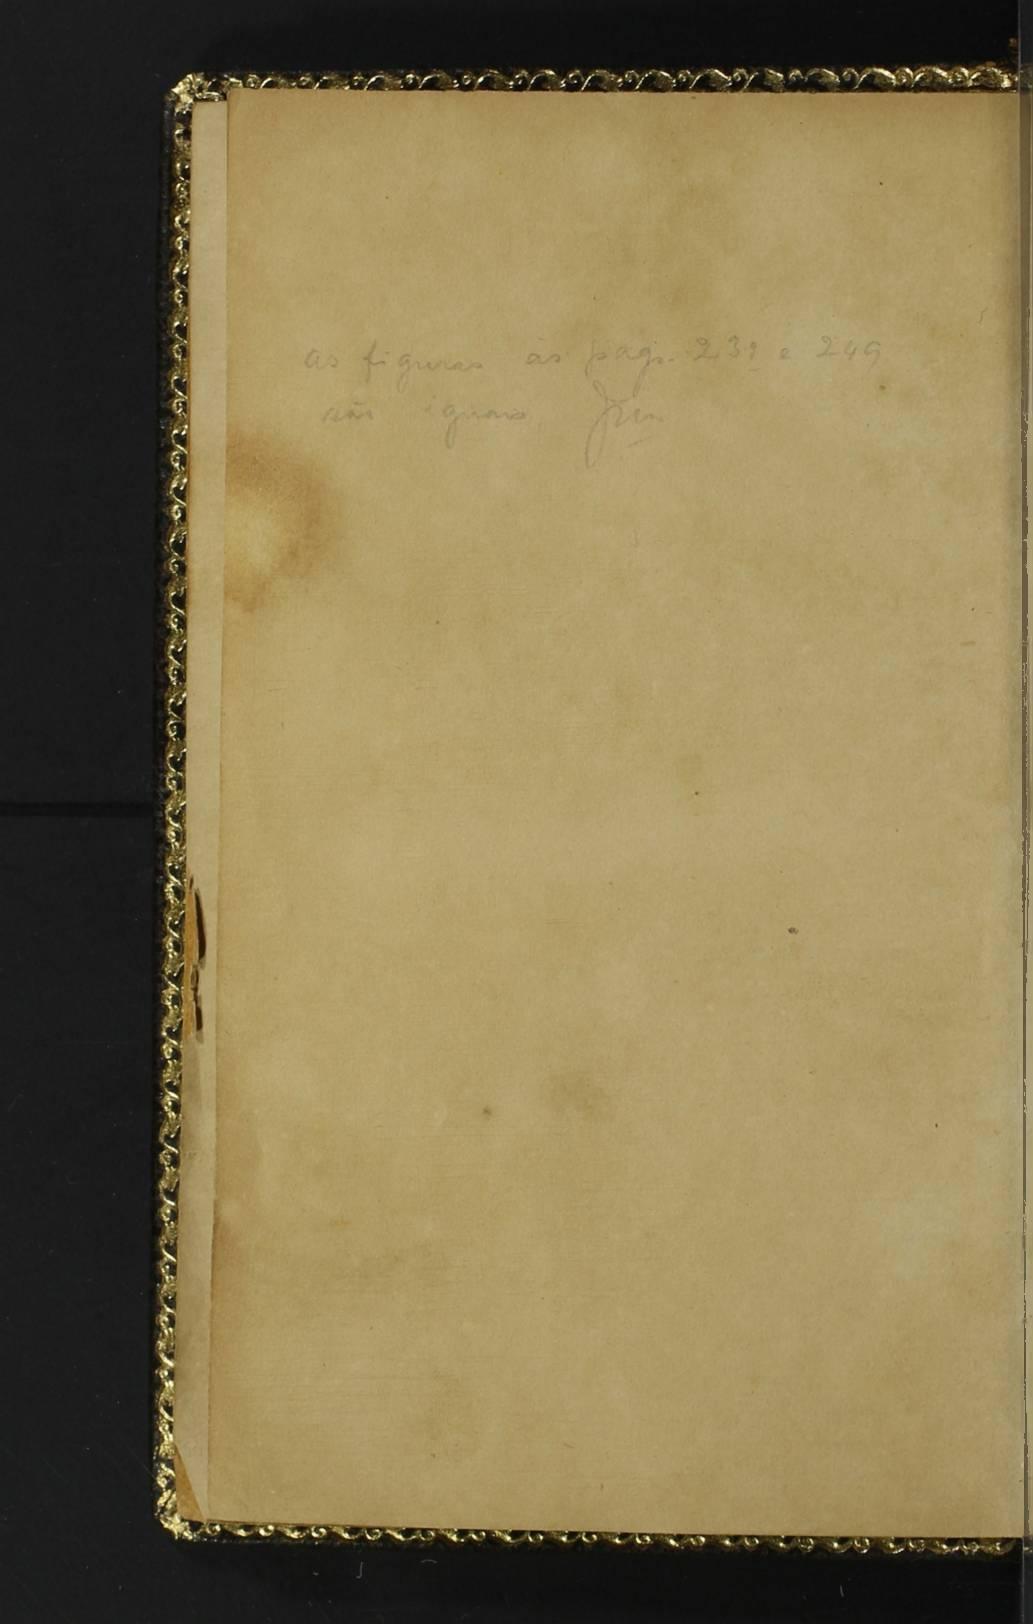 as figuras ás pags. 232 e 249
são iguais